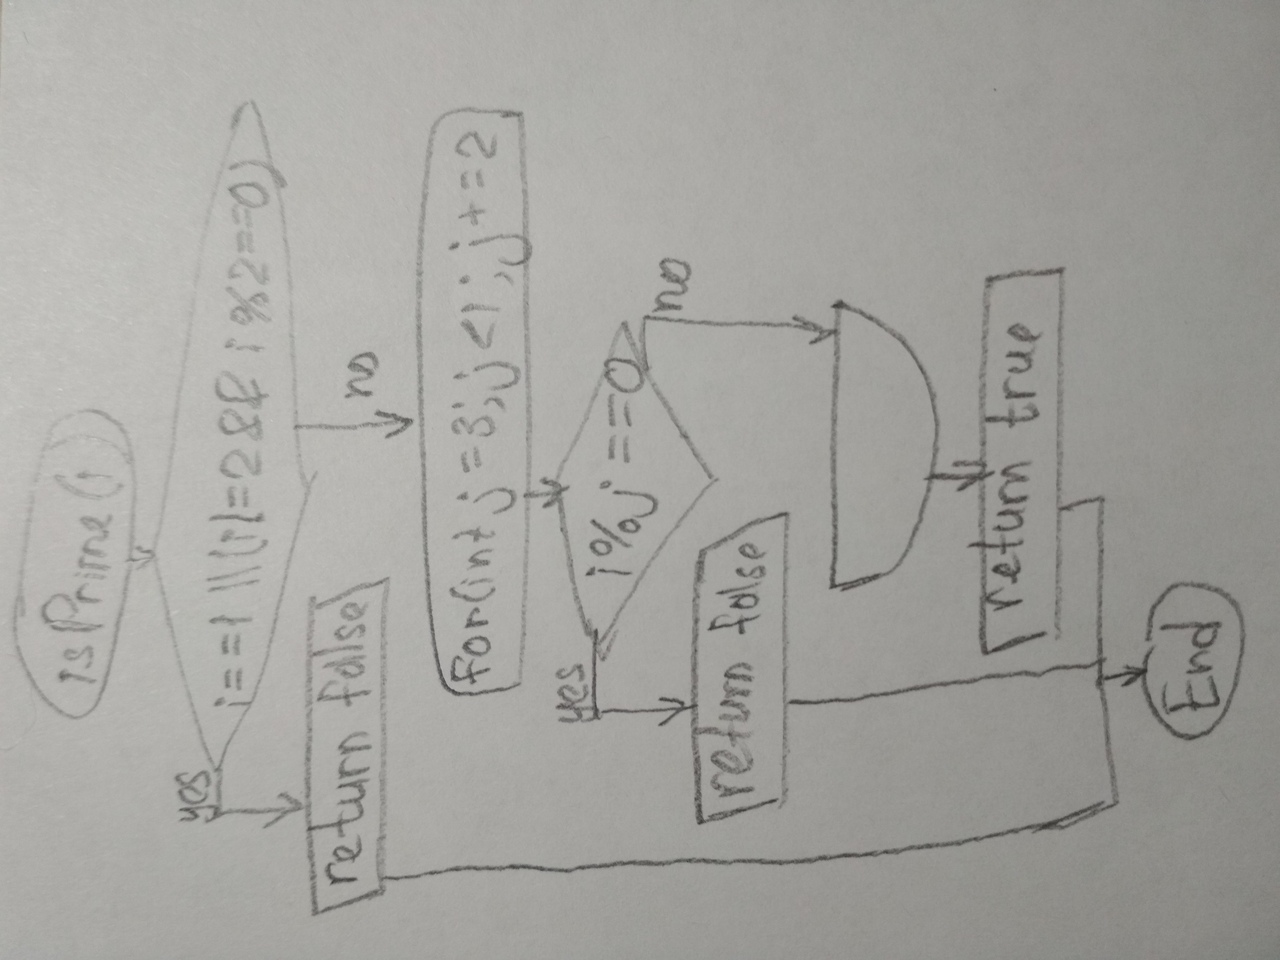 isPrime(i)
i==1 || (i!=2 && i%2==0)
yes
no
return false
for(int j=3; j<i; j+=2
i%j==0
yes
no
return false
return true
End